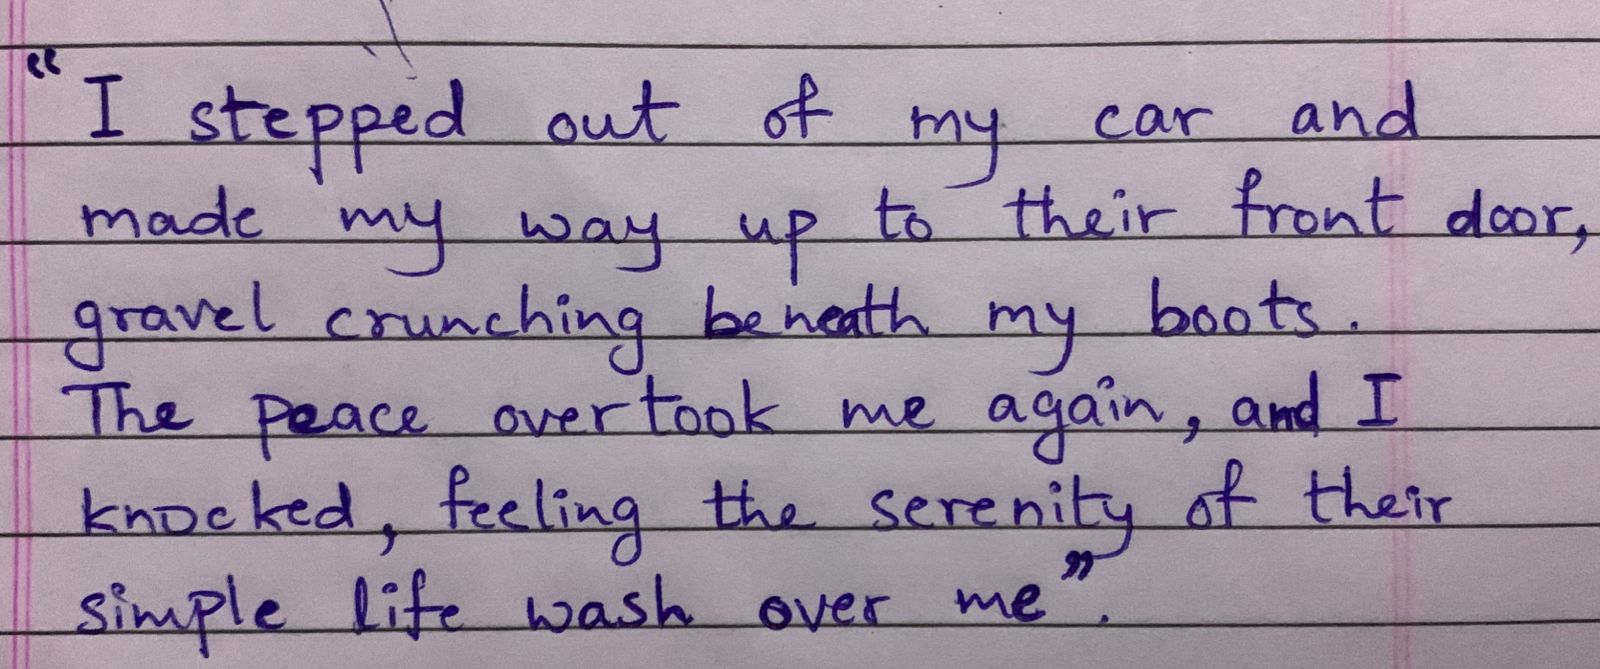 “I stepped out of my car and
made my way up to their front door,
gravel crunching beneath my boots.
The peace overtook me again, and I
knocked, feeling the serenity of their
simple life wash over me”.